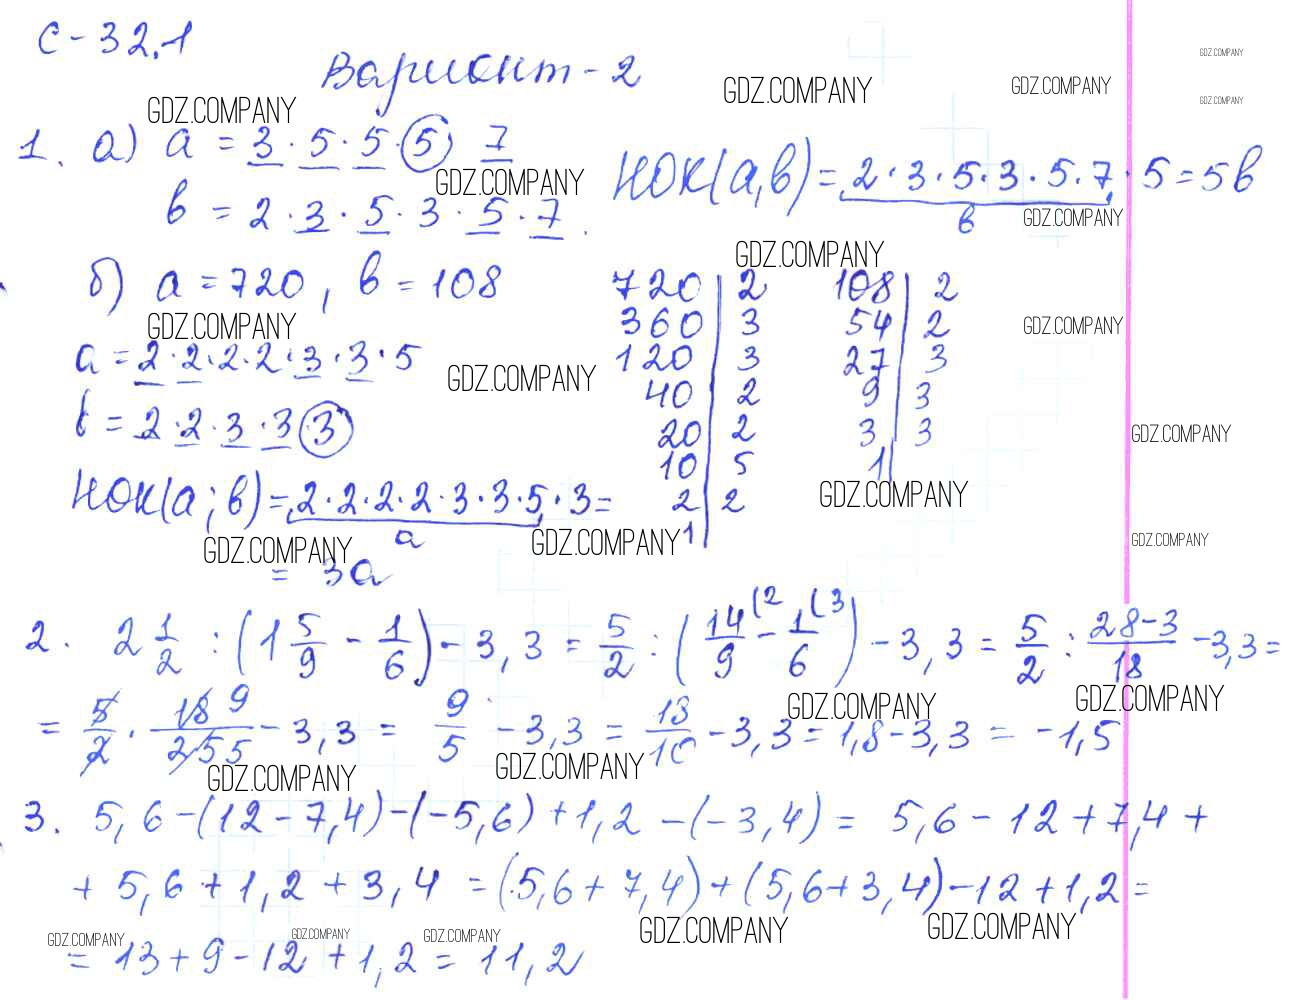 С-32.1
Вариант-2
GDZ.COMPANY GDZ.COMPANY GDZ.COMPANY GDZ.COMPANY GDZ.COMPANY
1. а) a = 3 · 5 · 5 · 5 · 7
НОК(a,b) = 2 · 3 · 5 · 3 · 5 · 7 · 5 = 5b
b
GDZ.COMPANY
b = 2 · 3 · 5 · 3 · 5 · 7.
GDZ.COMPANY
GDZ.COMPANY
б) a = 720, b = 108
720 | 2 108 | 2
GDZ.COMPANY GDZ.COMPANY
360 | 3 54 | 2
a = 2 · 2 · 2 · 2 · 3 · 3 · 5
120 | 3 27 | 3
GDZ.COMPANY
40 | 2 9 | 3
b = 2 · 2 · 3 · 3 · 3
20 | 2 3 | 3
GDZ.COMPANY
10 | 5 1 |
НОК(a;b) = 2 · 2 · 2 · 2 · 3 · 3 · 5 · 3 =
a
2 | 2
GDZ.COMPANY
1 |
GDZ.COMPANY GDZ.COMPANY GDZ.COMPANY
= 3a
2. 2 1/2 : (1 5/9 - 1/6) - 3,3 = 5/2 : (14/9 (2 - 1/6 (3) - 3,3 = 5/2 : 28-3/18 - 3,3 =
GDZ.COMPANY GDZ.COMPANY
= 5/2 · 18 9/25 5 - 3,3 = 9/5 - 3,3 = 18/10 - 3,3 = 1,8 - 3,3 = -1,5
GDZ.COMPANY GDZ.COMPANY
3. 5,6 - (12 - 7,4) - (-5,6) + 1,2 - (-3,4) = 5,6 - 12 + 7,4 +
+ 5,6 + 1,2 + 3,4 = (5,6 + 7,4) + (5,6 + 3,4) - 12 + 1,2 =
GDZ.COMPANY GDZ.COMPANY GDZ.COMPANY GDZ.COMPANY GDZ.COMPANY
= 13 + 9 - 12 + 1,2 = 11,2